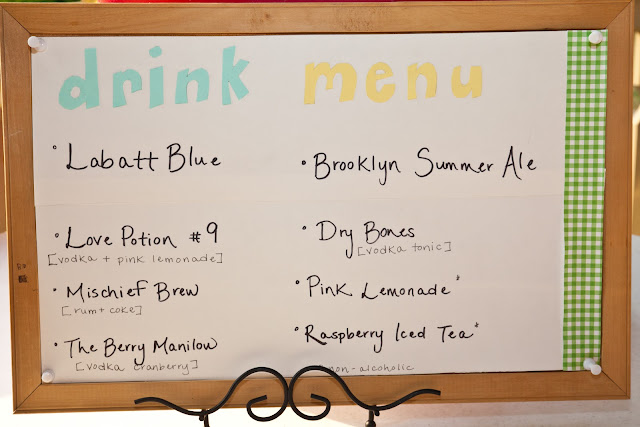 drink menu
° Labatt Blue
• Brooklyn Summer Ale
° Love Potion #9
[vodka + pink lemonade]
° Dry Bones
[vodka tonic]
• Mischief Brew
[rum + coke]
• Pink Lemonade*
° The Berry Manilow
[vodka cranberry]
• Raspberry Iced Tea*
non-alcoholic